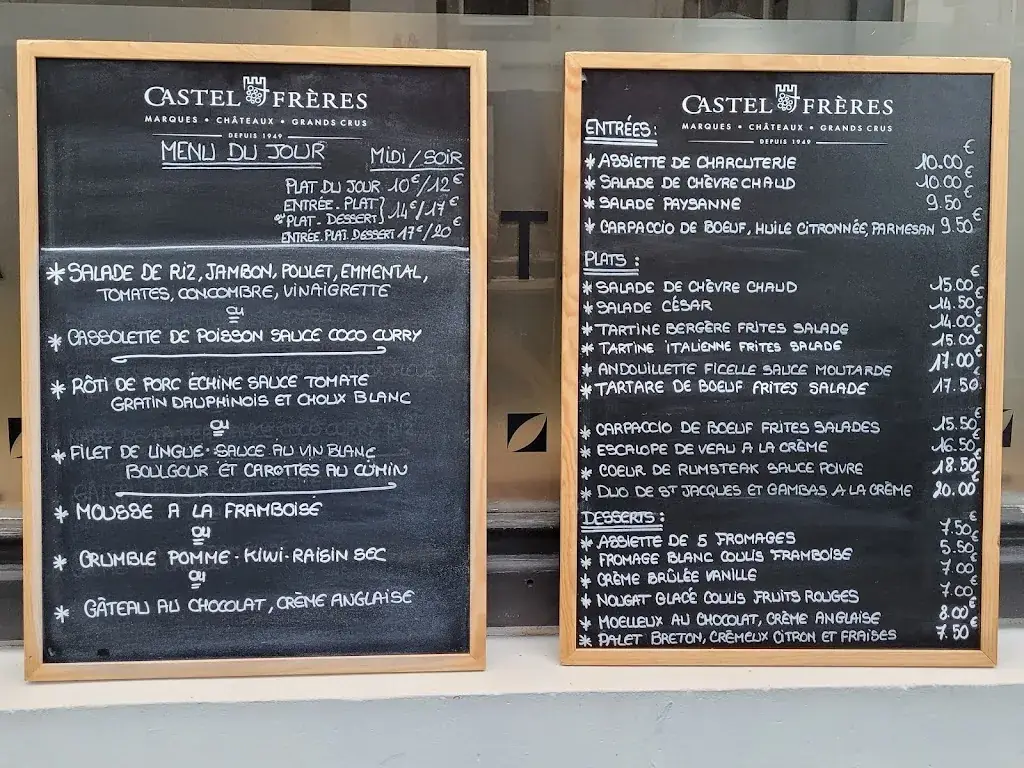 CASTEL FRÈRES
MARQUES • CHÂTEAUX • GRANDS CRUS
DEPUIS 1949
MENU DU JOUR
MIDI / SOIR
PLAT DU JOUR 10€/12€
ENTRÉE - PLAT } 14€/17€
ou PLAT - DESSERT
ENTRÉE. PLAT. DESSERT 17€/20€
* SALADE DE RIZ, JAMBON, POULET, EMMENTAL,
TOMATES, CONCOMBRE, VINAIGRETTE
ou
* CASSOLETTE DE POISSON SAUCE COCO CURRY
* RÔTI DE PORC ÉCHINE SAUCE TOMATE
GRATIN DAUPHINOIS ET CHOUX BLANC
ou
* FILET DE LINGUE - SAUCE AU VIN BLANC
BOULGOUR ET CAROTTES AU CUMIN
* MOUSSE A LA FRAMBOISE
ou
* CRUMBLE POMME - KIWI - RAISIN SEC
ou
* GÂTEAU AU CHOCOLAT, CRÈME ANGLAISE
CASTEL FRÈRES
MARQUES • CHÂTEAUX • GRANDS CRUS
DEPUIS 1949
ENTRÉES :
* ASSIETTE DE CHARCUTERIE 10.00€
* SALADE DE CHÈVRE CHAUD 10.00€
* SALADE PAYSANNE 9.50€
* CARPACCIO DE BOEUF, HUILE CITRONNÉE, PARMESAN 9.50€
PLATS :
* SALADE DE CHÈVRE CHAUD 15.00€
* SALADE CÉSAR 14.50€
* TARTINE BERGÈRE FRITES SALADE 14.00€
* TARTINE ITALIENNE FRITES SALADE 15.00€
* ANDOUILLETTE FICELLE SAUCE MOUTARDE 17.00€
* TARTARE DE BOEUF FRITES SALADE 17.50€
* CARPACCIO DE BOEUF FRITES SALADES 15.50€
* ESCALOPE DE VEAU A LA CRÈME 16.50€
* COEUR DE RUMSTEAK SAUCE POIVRE 18.50€
* DUO DE ST JACQUES ET GAMBAS A LA CRÈME 20.00€
DESSERTS :
* ASSIETTE DE 5 FROMAGES 7.50€
* FROMAGE BLANC COULIS FRAMBOISE 5.50€
* CRÈME BRÛLÉE VANILLE 7.00€
* NOUGAT GLACÉ COULIS FRUITS ROUGES 7.00€
* MOELLEUX AU CHOCOLAT, CRÈME ANGLAISE 8.00€
* PALET BRETON, CRÉMEUX CITRON ET FRAISES 7.50€